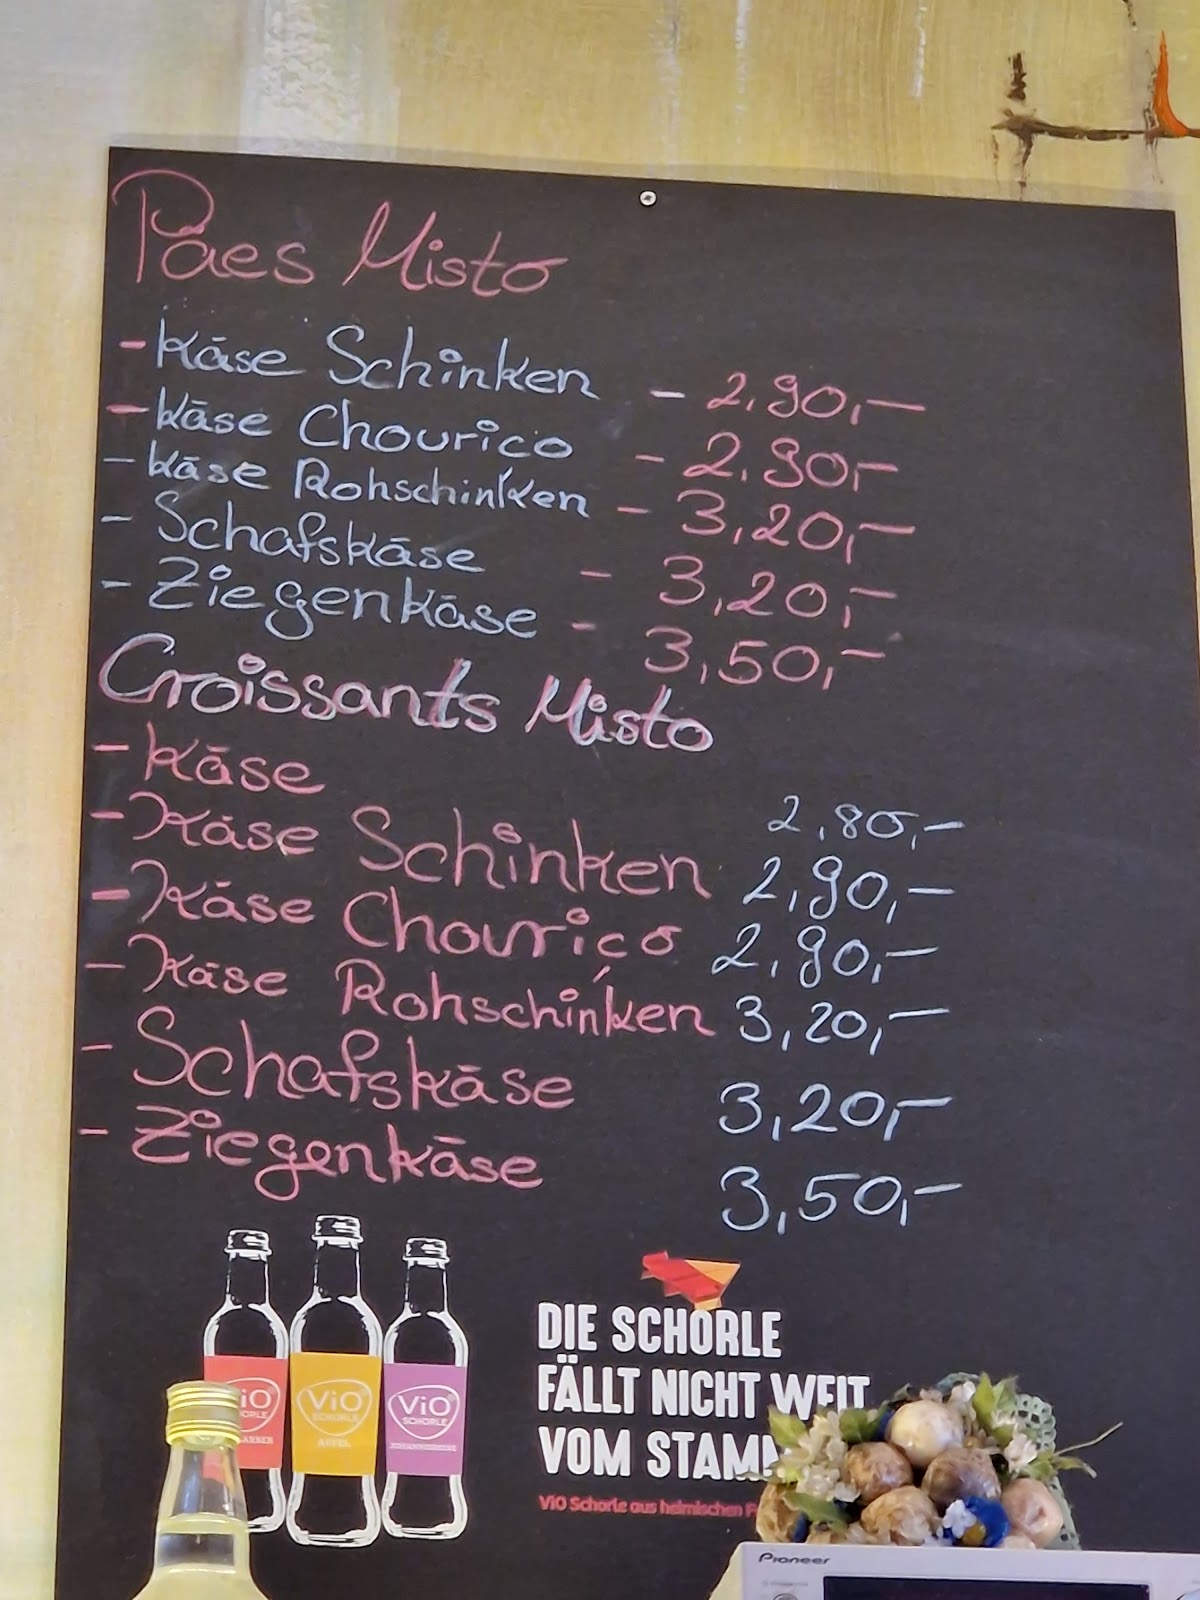 Pães Misto
- Käse Schinken - 2,90,-
- Käse Chourico - 2,90,-
- Käse Rohschinken - 3,20,-
- Schafskäse - 3,20,-
- Ziegenkäse - 3,50,-
Croissants Misto
- Käse 2,80,-
- Käse Schinken 2,90,-
- Käse Chouriço 2,90,-
- Käse Rohschinken 3,20,-
- Schafskäse 3,20,-
- Ziegenkäse 3,50,-
ViO SCHORLE APFEL
ViO SCHORLE
DIE SCHORLE
FÄLLT NICHT WEIT
VOM STAMM
ViO Schorle aus heimischen
Pioneer